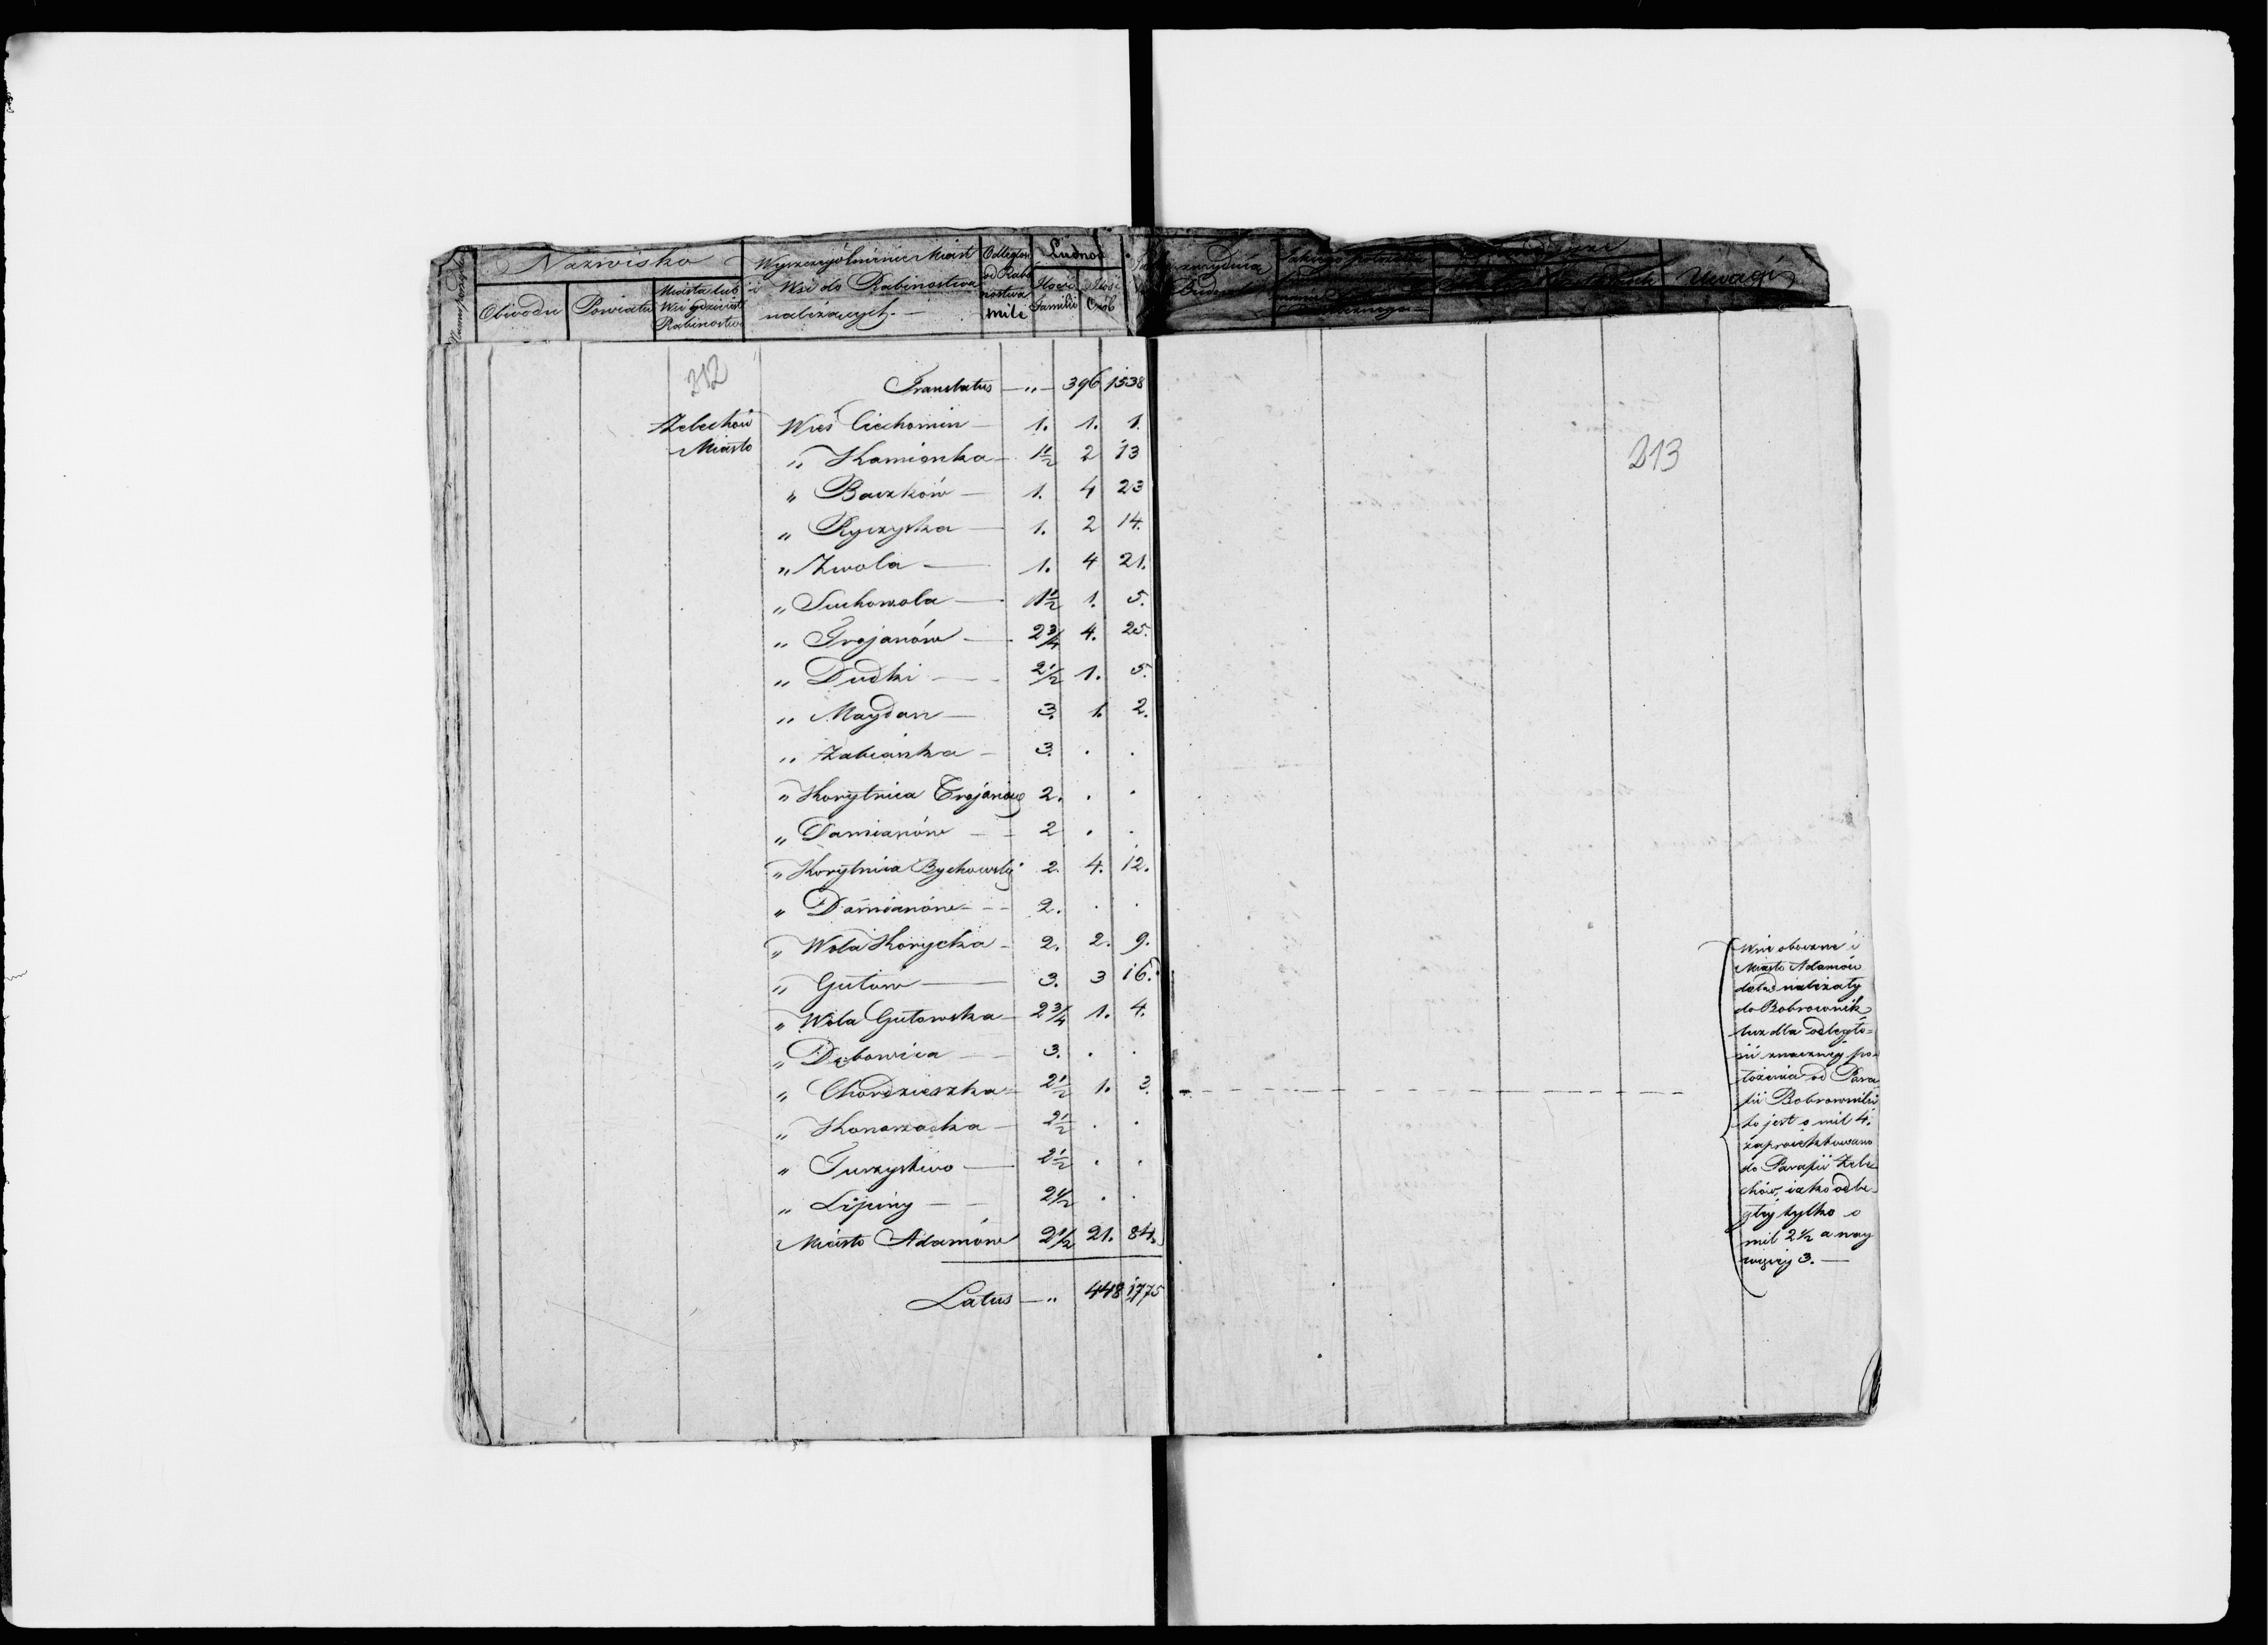 Nazwisko
Obwodu
Powiatu
Miasta lub
Wsi gdzie jest
Rabinostwo
Wyszczególnienie Miast
i Wsi do Rabinostwa
należących. —
Odległość
od Rabi
nostwa
mile
Ludność
Ilość
Familii
Ilość
Osób
Uwagi
212
213
Translatus — „ — 396 1538
Żelechów Wieś Ciechomin — 1. 1. 1.
Miasto „ Kamionka — 1 1/2 2 13
„ Baczków — 1. 4 23
„ Ryczyska — 1. 2 14.
„ Zwola — 1. 4 21.
„ Suchowola — 1 1/2 1. 5.
„ Trojanów — 2 3/4 4. 25.
„ Dudki — 2 1/2 1. 5.
„ Maydan — 3. 1. 2.
„ Żabianka — 3. . .
„ Korytnica Trojanow 2. . .
„ Damianów — 2 . .
„ Korytnica Bychowsky 2. 4. 12.
„ Damianów — 2. . .
„ Wola Korycka — 2. 2. 9.
„ Gułow — 3. 3 16.
„ Wola Gułowska — 2 3/4 1. 4.
„ Dębowica — 3. . .
„ Chordzieszka — 2 1/2 1. 3.
„ Konorzatka — 2 1/2 . .
„ Turzystwo — 2 1/2 . .
„ Lipiny — 2 1/2 . .
Miasto Adamów 2 1/2 21. 84.
Latus — „ 448 1775
Wsie oboczne i
Miasto Adamów
dotąd należały
do Bobrownik
lecz dla odległo=
ści znaczney po=
łożenia od Para
fii Bobrowniki
to jest o mil 4.
zaproiektowano
do Parafii Żele
chów, iako odle
głey tylko o
mil 2 1/2 a nay
więcey 3. —